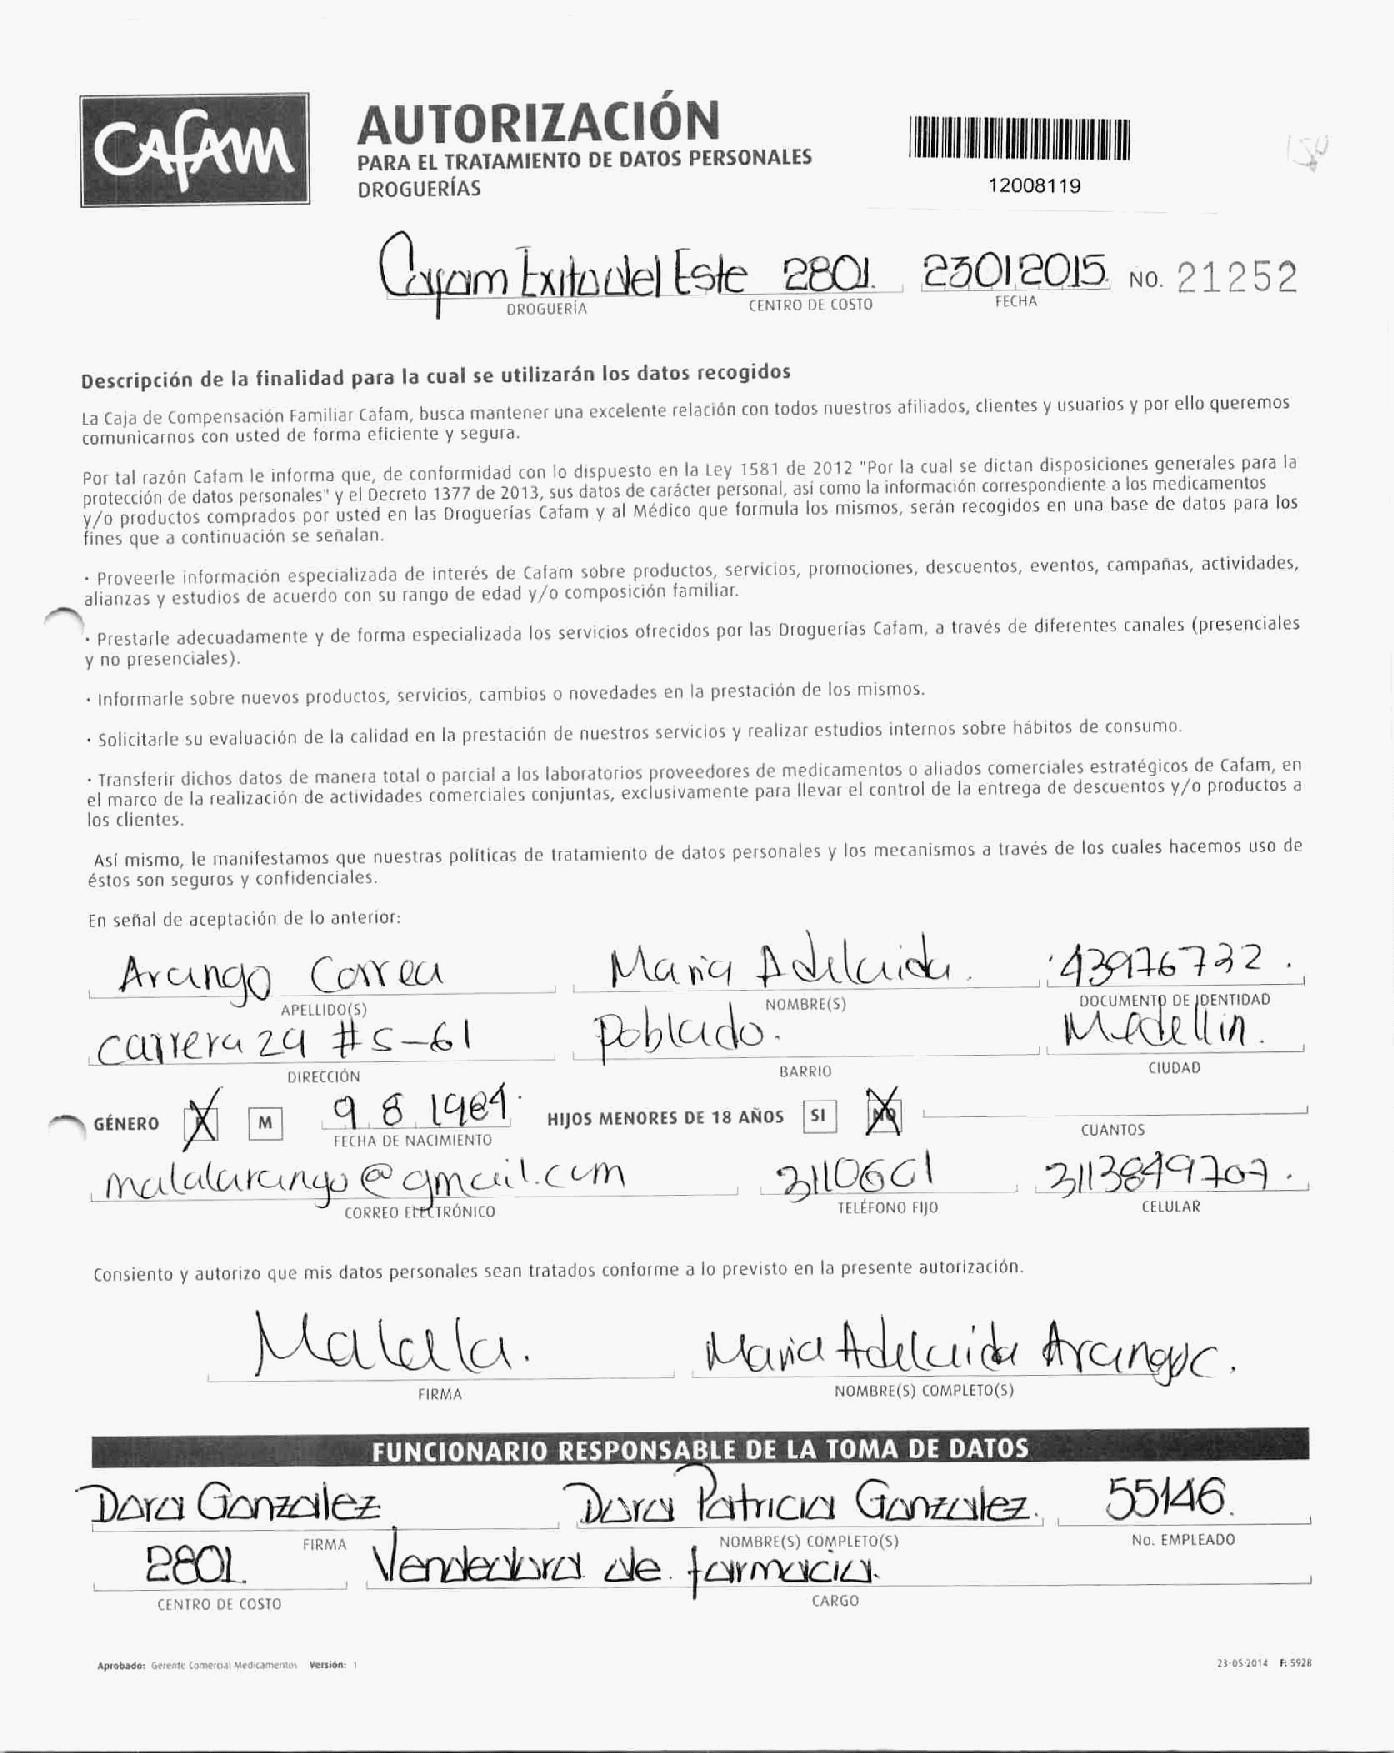 CAFAM
AUTORIZACIÓN
PARA EL TRATAMIENTO DE DATOS PERSONALES
DROGUERÍAS
12008119
Cafam Exito del Este 2801. 23012015. No. 21252
DROGUERÍA CENTRO DE COSTO FECHA
Descripción de la finalidad para la cual se utilizarán los datos recogidos
La Caja de Compensación Familiar Cafam, busca mantener una excelente relación con todos nuestros afiliados, clientes y usuarios y por ello queremos
comunicarnos con usted de forma eficiente y segura.
Por tal razón Cafam le informa que, de conformidad con lo dispuesto en la Ley 1581 de 2012 "Por la cual se dictan disposiciones generales para la
protección de datos personales" y el Decreto 1377 de 2013, sus datos de carácter personal, así como la información correspondiente a los medicamentos
y/o productos comprados por usted en las Droguerías Cafam y al Médico que formula los mismos, serán recogidos en una base de datos para los
fines que a continuación se señalan.
· Proveerle información especializada de interés de Cafam sobre productos, servicios, promociones, descuentos, eventos, campañas, actividades,
alianzas y estudios de acuerdo con su rango de edad y/o composición familiar.
· Prestarle adecuadamente y de forma especializada los servicios ofrecidos por las Droguerías Cafam, a través de diferentes canales (presenciales
y no presenciales).
· Informarle sobre nuevos productos, servicios, cambios o novedades en la prestación de los mismos.
· Solicitarle su evaluación de la calidad en la prestación de nuestros servicios y realizar estudios internos sobre hábitos de consumo.
· Transferir dichos datos de manera total o parcial a los laboratorios proveedores de medicamentos o aliados comerciales estratégicos de Cafam, en
el marco de la realización de actividades comerciales conjuntas, exclusivamente para llevar el control de la entrega de descuentos y/o productos a
los clientes.
Así mismo, le manifestamos que nuestras políticas de tratamiento de datos personales y los mecanismos a través de los cuales hacemos uso de
éstos son seguros y confidenciales.
En señal de aceptación de lo anterior:
Arango Correa Maria Adelaida. 43976732.
APELLIDO(S) NOMBRE(S) DOCUMENTO DE IDENTIDAD
carrera 24 #5-61 Poblado. Medellin.
DIRECCIÓN BARRIO CIUDAD
GÉNERO M 9 8 1984. HIJOS MENORES DE 18 AÑOS SI NO
FECHA DE NACIMIENTO CUANTOS
malalarango@gmail.com 3110601 3113849707.
CORREO ELECTRÓNICO TELÉFONO FIJO CELULAR
Consiento y autorizo que mis datos personales sean tratados conforme a lo previsto en la presente autorización.
Malala. Maria Adelaida Arango C.
FIRMA NOMBRE(S) COMPLETO(S)
FUNCIONARIO RESPONSABLE DE LA TOMA DE DATOS
Dora Gonzalez Dora Patricia Gonzalez. 55146.
FIRMA NOMBRE(S) COMPLETO(S) No. EMPLEADO
2801. Vendedora de farmacia.
CENTRO DE COSTO CARGO
Aprobado: Gerente Comercial Medicamentos Versión: 1 23-05-2014 F: 5928